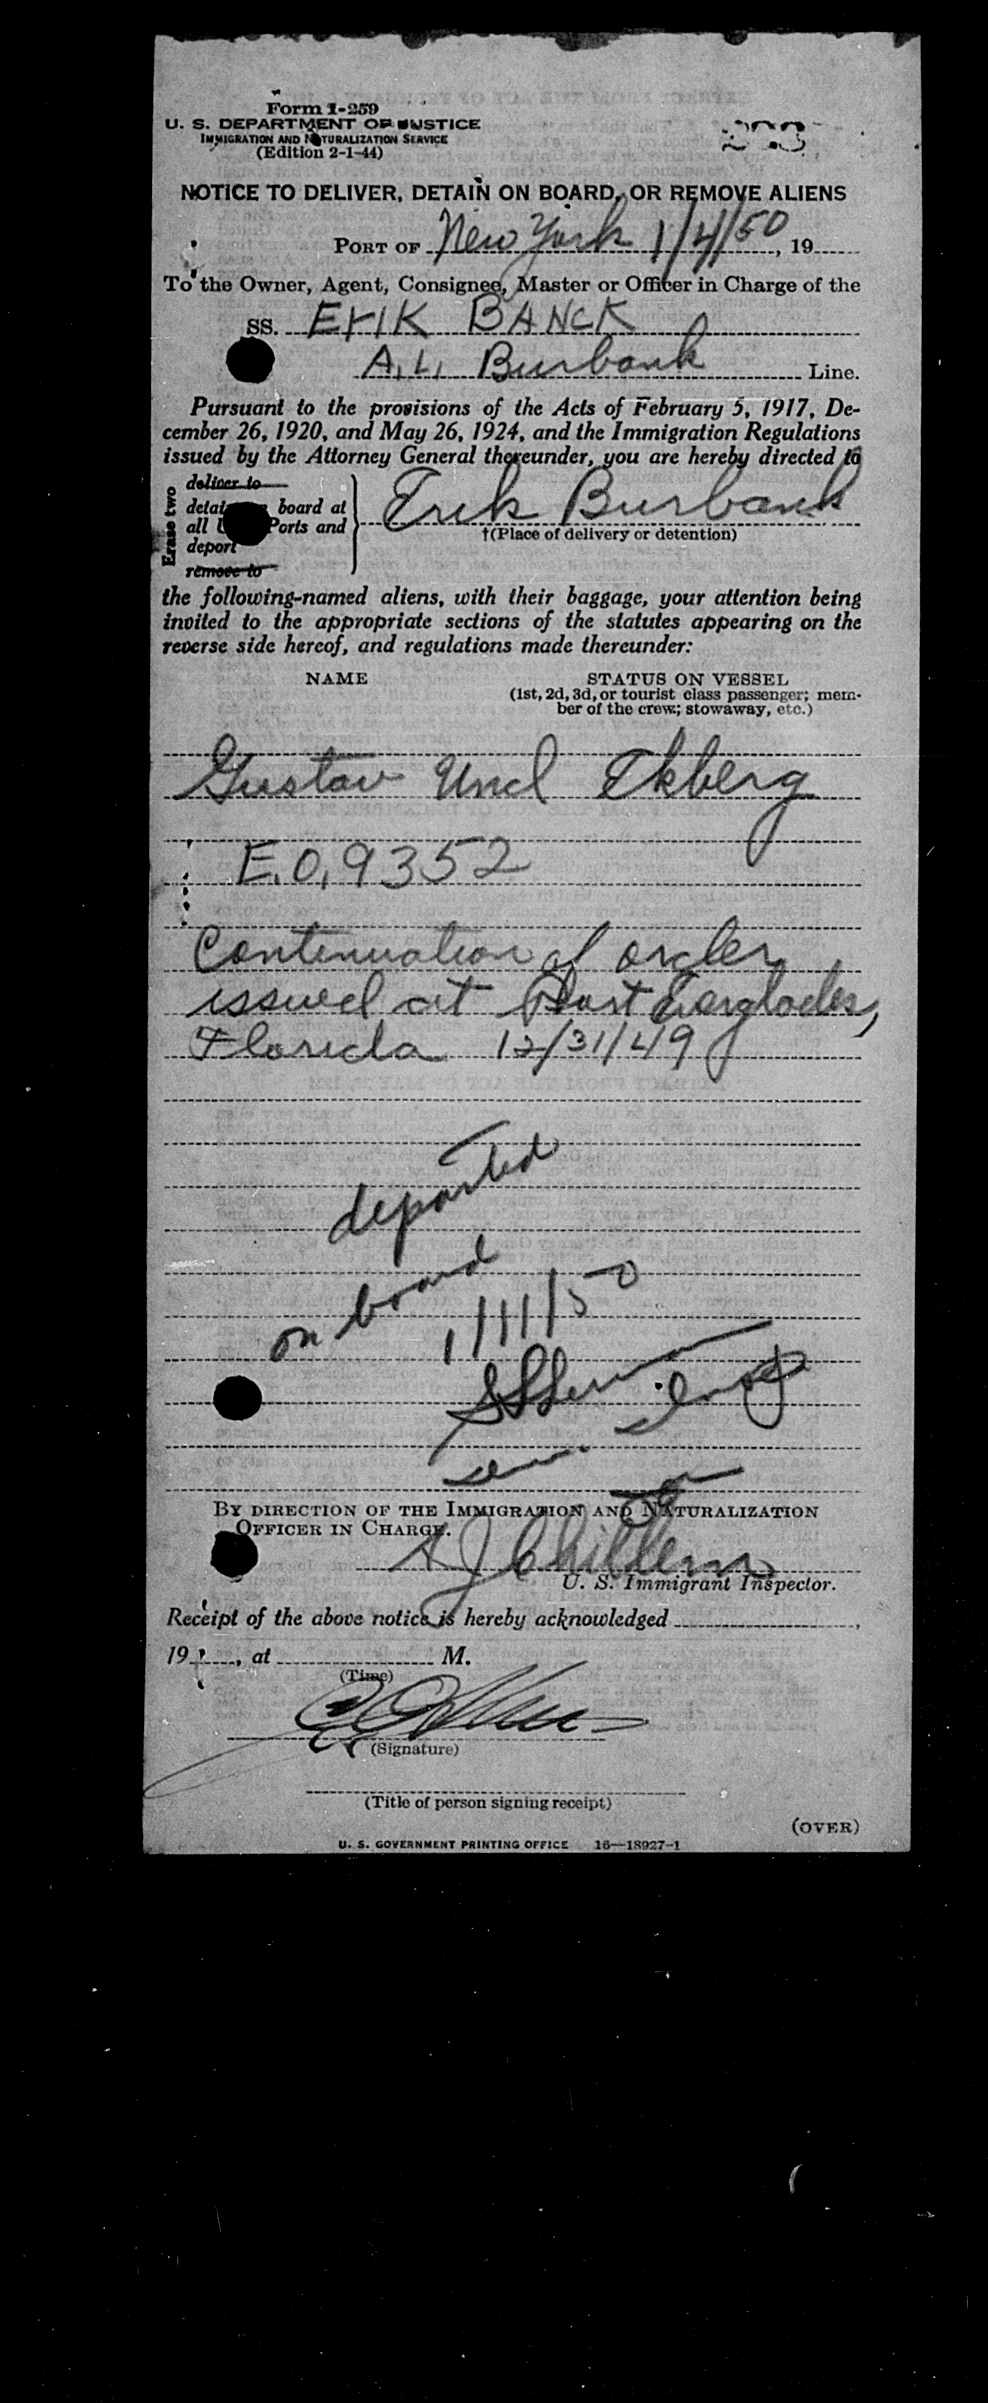 Form I-259
U. S. DEPARTMENT OF JUSTICE
IMMIGRATION AND NATURALIZATION SERVICE
(Edition 2-1-44)
NOTICE TO DELIVER, DETAIN ON BOARD, OR REMOVE ALIENS
PORT OF New York 1/4/50, 19
To the Owner, Agent, Consignee, Master or Officer in Charge of the
SS. ErIK BANCK
A. L. Burbank Line.
Pursuant to the provisions of the Acts of February 5, 1917, De-
cember 26, 1920, and May 26, 1924, and the Immigration Regulations
issued by the Attorney General thereunder, you are hereby directed to
Erase two
deliver to
detain board at
all Ports and
deport
remove to
Erik Burbank
†(Place of delivery or detention)
the following-named aliens, with their baggage, your attention being
invited to the appropriate sections of the statutes appearing on the
reverse side hereof, and regulations made thereunder:
NAME STATUS ON VESSEL
(1st, 2d, 3d, or tourist class passenger; mem-
ber of the crew; stowaway, etc.)
Gustav Ekberg
E.O. 9352
Continuation of order
issued at Port Everglades,
Florida 12/31/49
departed
on board
1/11/50
BY DIRECTION OF THE IMMIGRATION AND NATURALIZATION
OFFICER IN CHARGE.
U. S. Immigrant Inspector.
Receipt of the above notice is hereby acknowledged ,
19 , at M.
(Time)
(Signature)
(Title of person signing receipt)
(OVER)
U. S. GOVERNMENT PRINTING OFFICE 16—18927-1